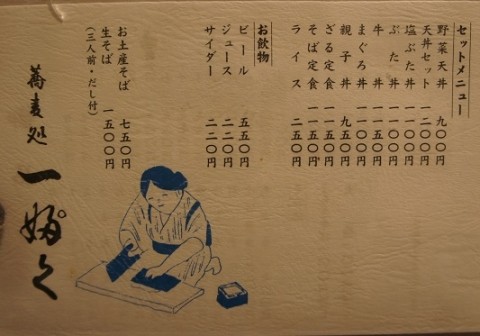 セットメニュー
野菜天丼 九〇〇円
天丼セット 一二〇〇円
塩ぶた丼 一一〇〇円
ぶた丼 一一〇〇円
牛丼 一一五〇円
まぐろ丼 一一〇〇円
親子丼 九五〇円
ざる定食 一一〇〇円
そば定食 一一五〇円
ライス 二五〇円
お飲物
ビール 五五〇円
ジュース 二二〇円
サイダー 二二〇円
お土産そば 七五〇円
生そば 一五〇〇円
(三人前・だし付)
蕎麦処
一婦゜く